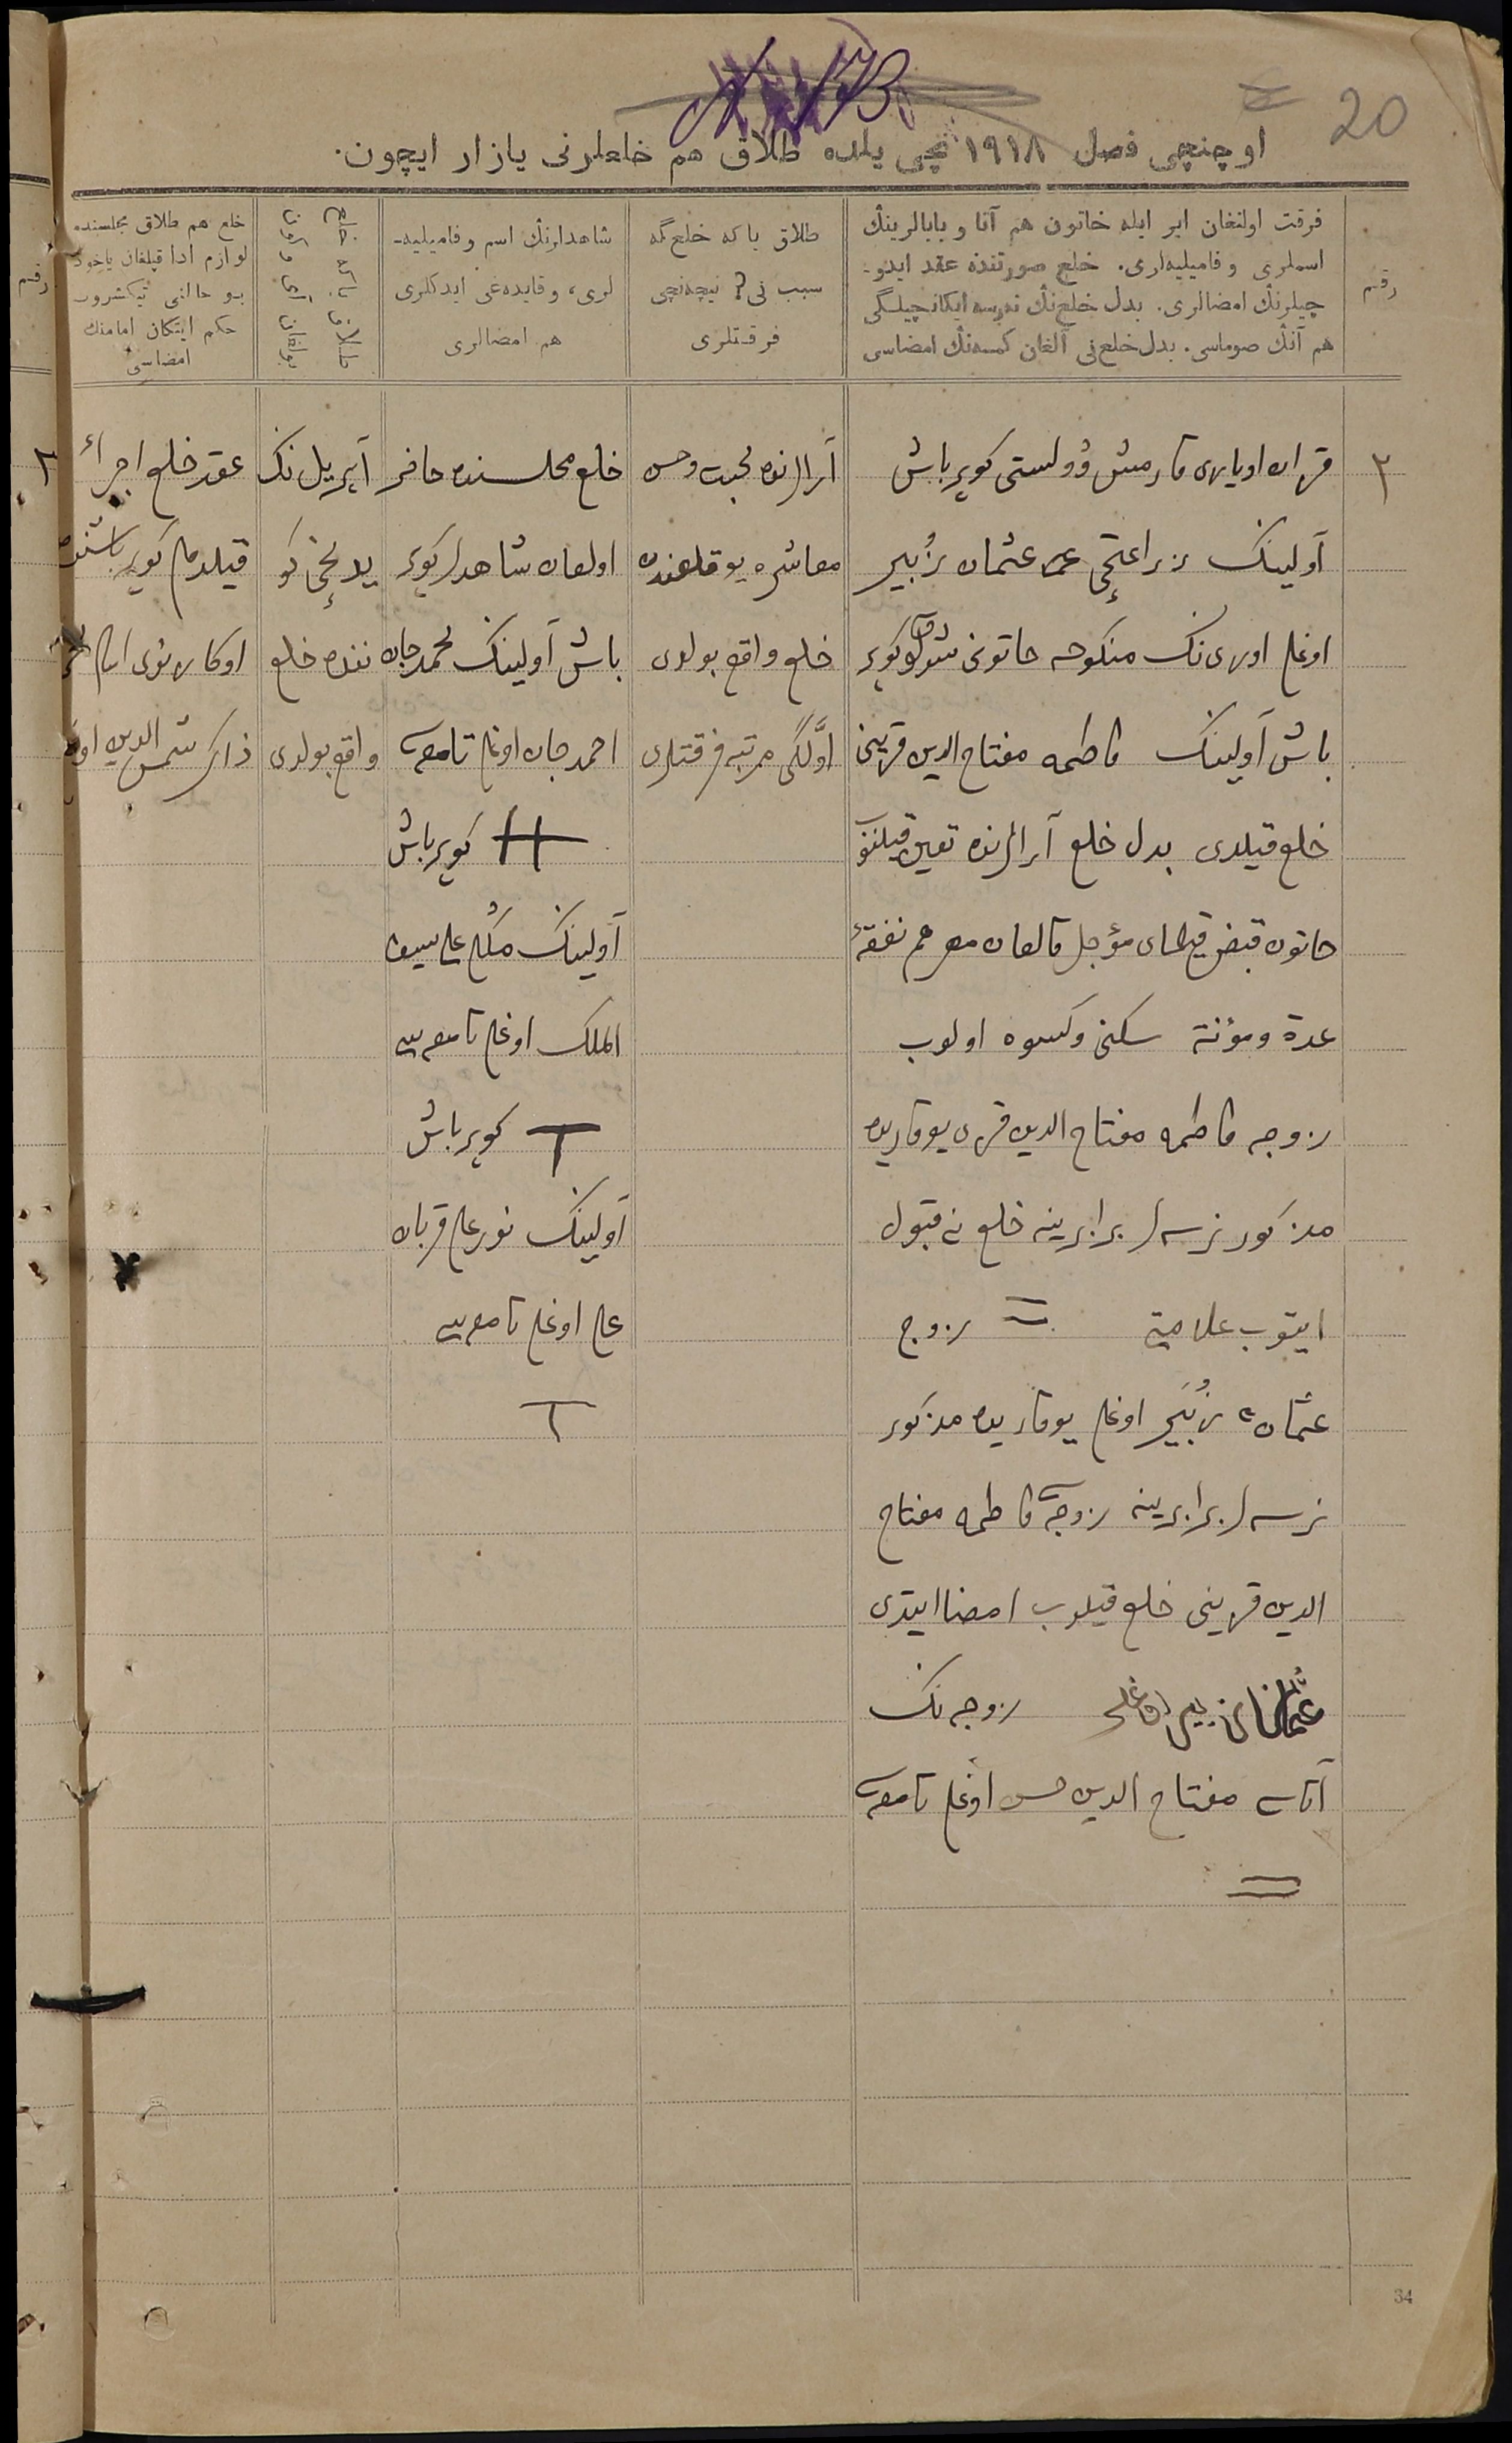 20
اوچنچی فصل ۱۹۱۸ نچی یلده طلاق هم خلعلرنی یازار ایچون.
رقم
فرقت اولنغان ایر ایله خاتون هم آتا و بابالرینڭ
اسملری و فامیلیه‌لری. خلع صورتنده عقد ایدو-
چیلرنڭ امضالری. بدل خلع‌نڭ نه‌رسه ایکانچیلگی
هم آنڭ صوماسی. بدل خلع‌نی آلغان کمسه‌نڭ امضاسی
طلاق یا که خلع گه
سبب نی؟ نیچه‌نچی
فرقتلری
شاهدلرنڭ اسم و فامیلیه-
لری، و قایده‌غی ایدکلری
هم امضالری
خلع هم طلاق مجلسنده
لوازم ادا قیلغان یاخود
بو حالنی تیکشروب
حکم ایتکان امامنڭ
امضاسی
رقم
۳
قزان اویازی قارمش وولستی کویر باش
آولینڭ زراعتچی عثمان زبیر
اوغلی اوزی نڭ منکوحه خاتونی شوق کویر
باش آولینڭ فاطمه مفتاح الدین قزینی
خلع قیلدی بدل خلع آرالرنده تعیین قیلنوب
خاتون قبض قیلمای مؤجل قالغان مهر هم نفقهٔ
عدة ومؤنة سکنی وکسوه اولوب
زوجه فاطمه مفتاح الدین قزی یوقاریده
مذکور نرسه‌لر برابرینه خلع نی قبول
ایتوب علامتی = زوج
عثمان زُبَیر اوغلی یوقاریده مذکور
نرسه‌لر برابرینه زوجه‌سی فاطمه مفتاح
الدین قزینی خلع قیلوب امضا ایتدی
عثمان زبیر اوغلی زوجه نڭ
آتاسی مفتاح الدین حسن اوغلی تامغاسی
=
آرالرنده محبت وحسن
معاشره یوقلغندن
خلع واقع بولدی
اوّلگی مرتبه فرقتلری
خلع مجلسنده حاضر
اولغان شاهدلر کویر
باش آولینڭ محمدجان
احمدجان اوغلی تامغاسی
کویر باش
آولینڭ علی سیف
الملك اوغلی تامغاسی
T کویر باش
آولینڭ نورعلی قربان
علی اوغلی تامغاسی
T
آپریل نڭ
یدنچی کو
ننده خلع
واقع بولدی
عقد خلع اجراء
قیلدم کویر باشنده
ذاکر شمس الدین
۳
34